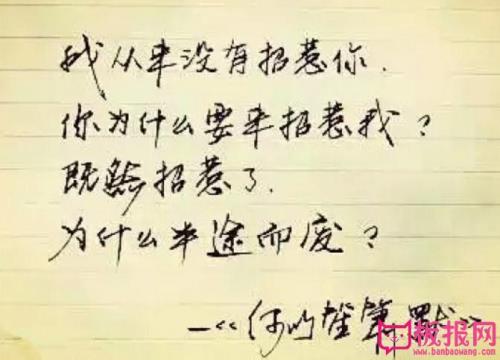 我从来没有招惹你.
你为什么要来招惹我？
既然招惹了.
为什么半途而废？
—<<何以笙箫默>>
板报网
www.banbaowang.com